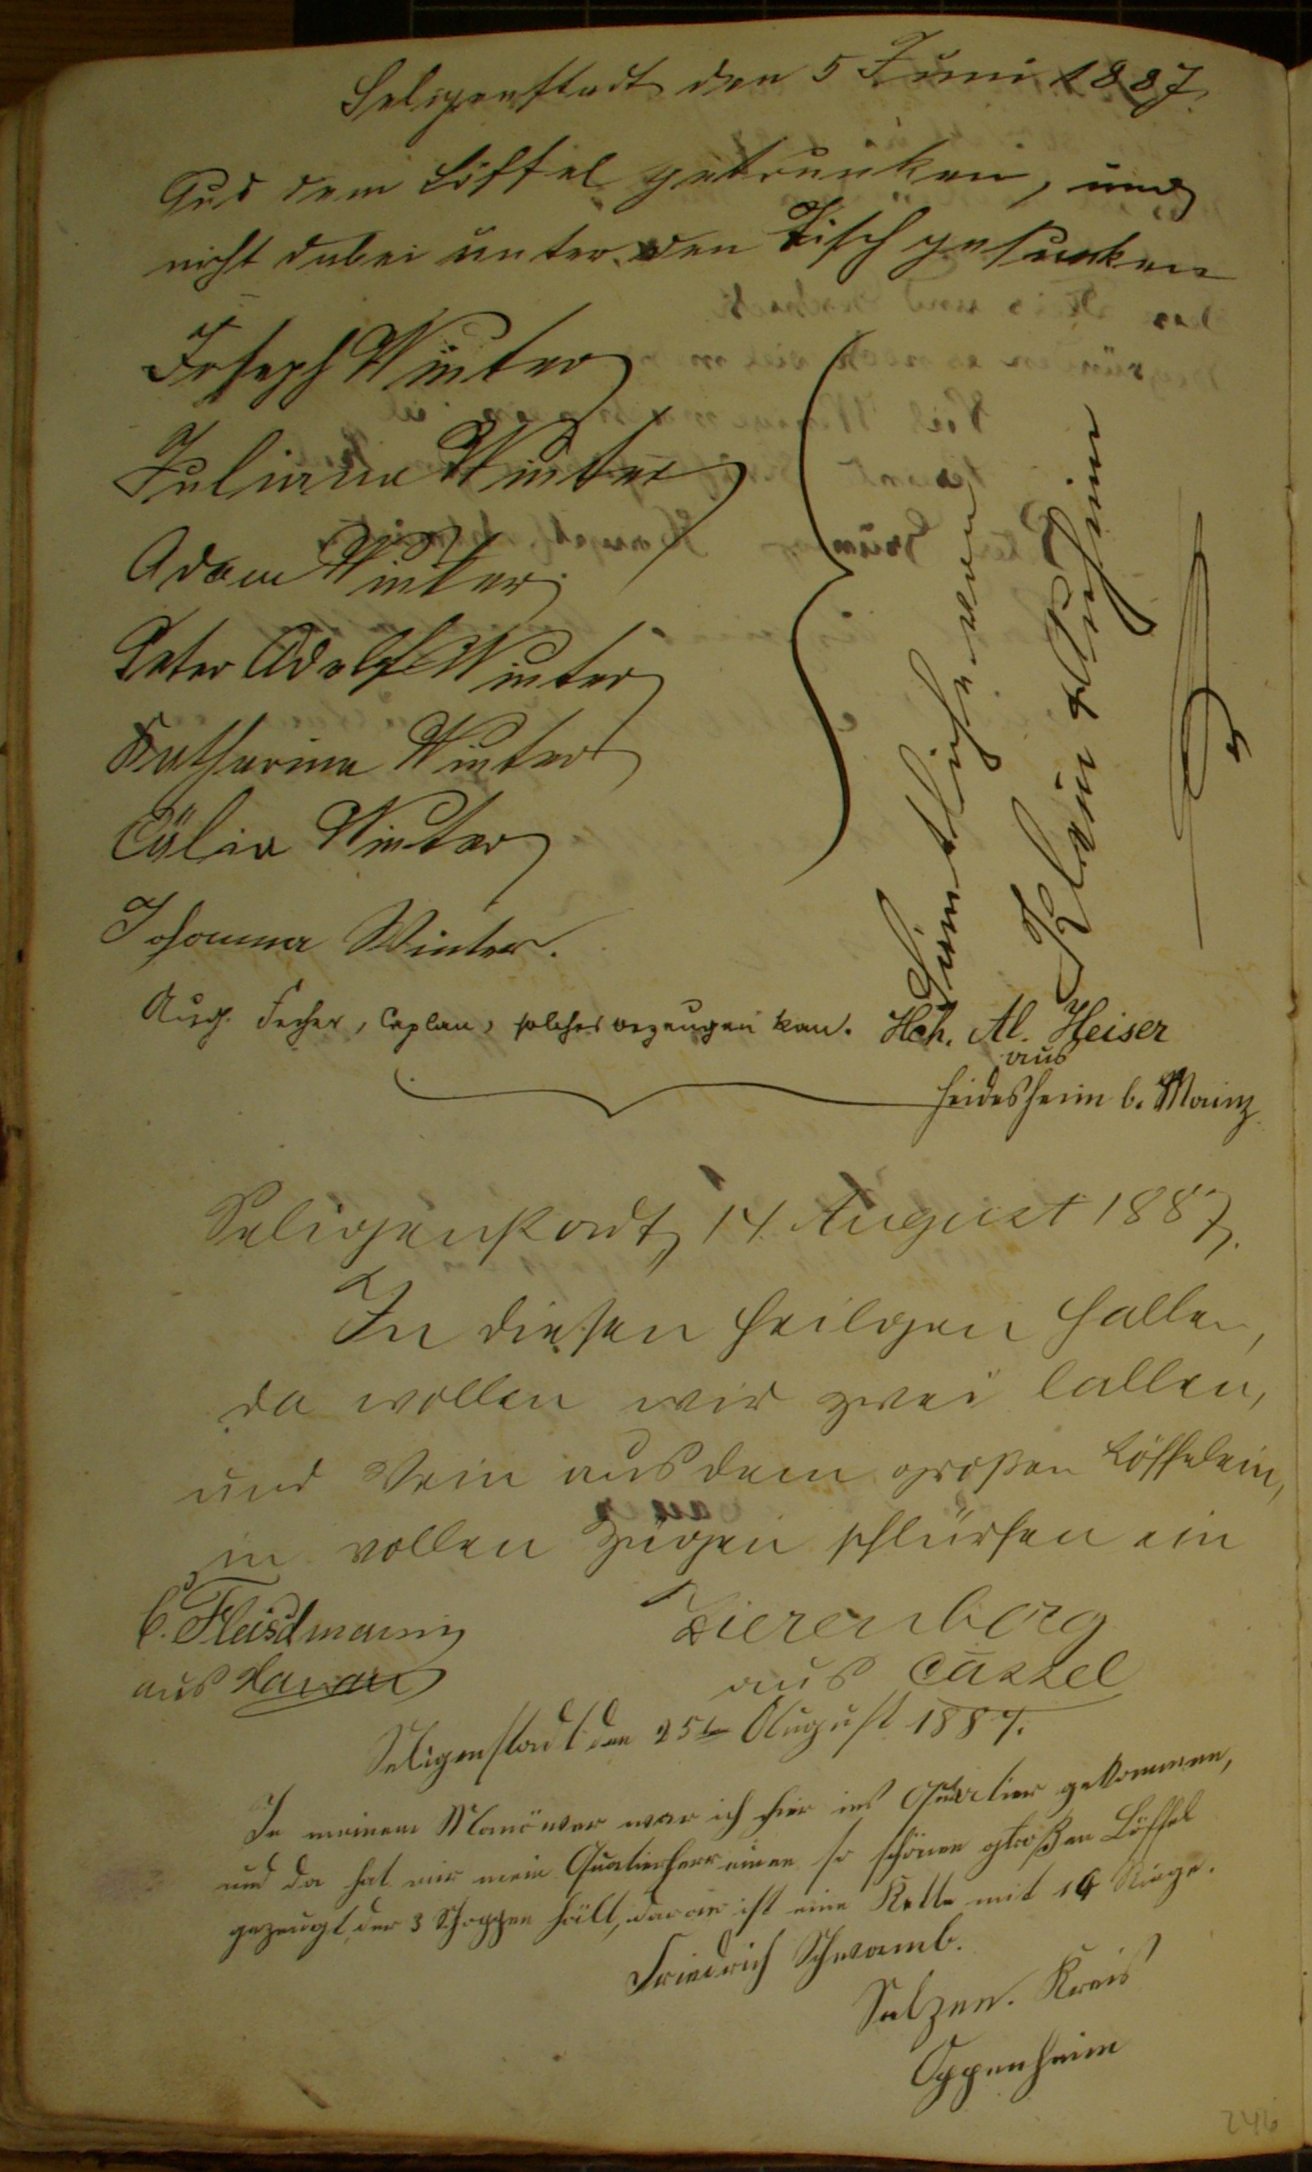 Seligenstadt den 5 Juni 1887.
Aus dem Löffel getrunken, und
nicht dabei unter den Tisch gesunken
Joseph Winter
Juliana Winter
Adam Winter
Peter Adolf Winter
Katharina Winter
Cälia Winter
Johanna Winter.
Sämmtliche von
Klein Auheim
Aug. Fecher, Caplan, solches bezeugen kan.
Hch. Al. Heiser
aus
Heidesheim b. Mainz
Seligenstadt, 14. August 1887.
In diesen heilgen Hallen,
da wollen wir zwei lallen,
und Wein aus dem großen Löffelein,
in vollen Zügen schlürfen ein
C. Fleischmann
aus Hanau
Zierenberg
aus Cassel
Seligenstadt den 25te August 1887.
In meinem Manöwer war ich hier ins Quatier gekommen,
und da hat mir mein Quatierherr einen so schönen großen Löffel
gezeugt, der 3 Schoppen hält, daran ist eine Kette mit 14 Ringe.
Friedrich Schwamb.
Selzen. Kreis
Oppenheim
246